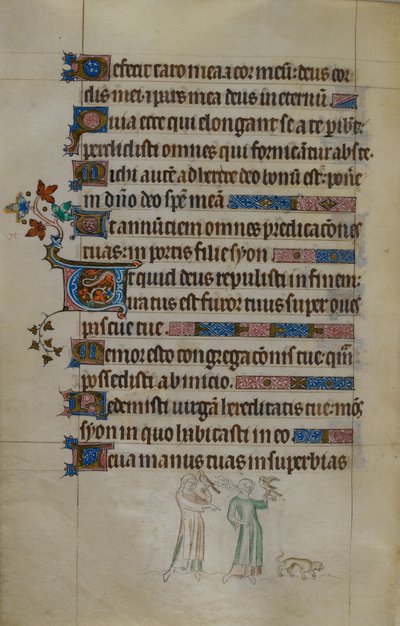 Defecit caro mea ⁊ cor meū: deus cor
dis mei ⁊ pars mea deus in eternū
Quia ecce qui elongant se a te ꝑibūt:
perdidisti omnes qui fornicantur abs te.
Michi autē adherere deo bonū est: ponē
in dn̄o deo spē meā
Ut annūciem omnes predicacōnes
tuas: in portis filie syon
Ut quid deus repulisti in finem:
iratus est furor tuus super oues
pascue tue.
Memor esto congregacōnis tue: qm̄
possedisti ab inicio.
Redemisti virgā hereditatis tue: mōs
syon in quo habitasti in eo
Leua manus tuas in superbias